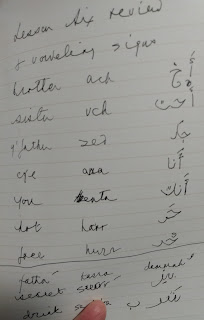 Lesson six review
& voweling signs
brother ach أَخ
sister uch أُخت
g'father zed جَد
eye ana أَنا
you enta أَنتَ
hot harr حَر
free hurr حُر
fatha kasra dammah
secret
drink